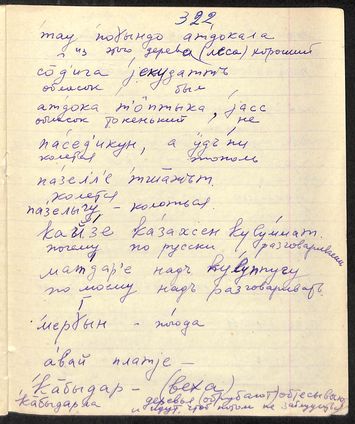 322
тау по̄бындо атдокала
из этого дерева (леса) хороший
со̄д'ига јекудатть
обласок был
атдока т'о̄птыка, јасс
обласок тоненький, не
па́сед'икун, а ӱдъ'ни
колется тополь
па́зелл'е тшажыт.
колется
пазелыгу - колоться
кайзе казахсен кулумат.
почему по русски разговариваешь
матдар'е надъ кулупугу
по моему надъ разговаривать
мергын - плода
авай платје -
ка̄быдар - (веха)
ка̄быдарла деревья (обрубают) обтесывают
и идут, чтоб потом не заблудиться